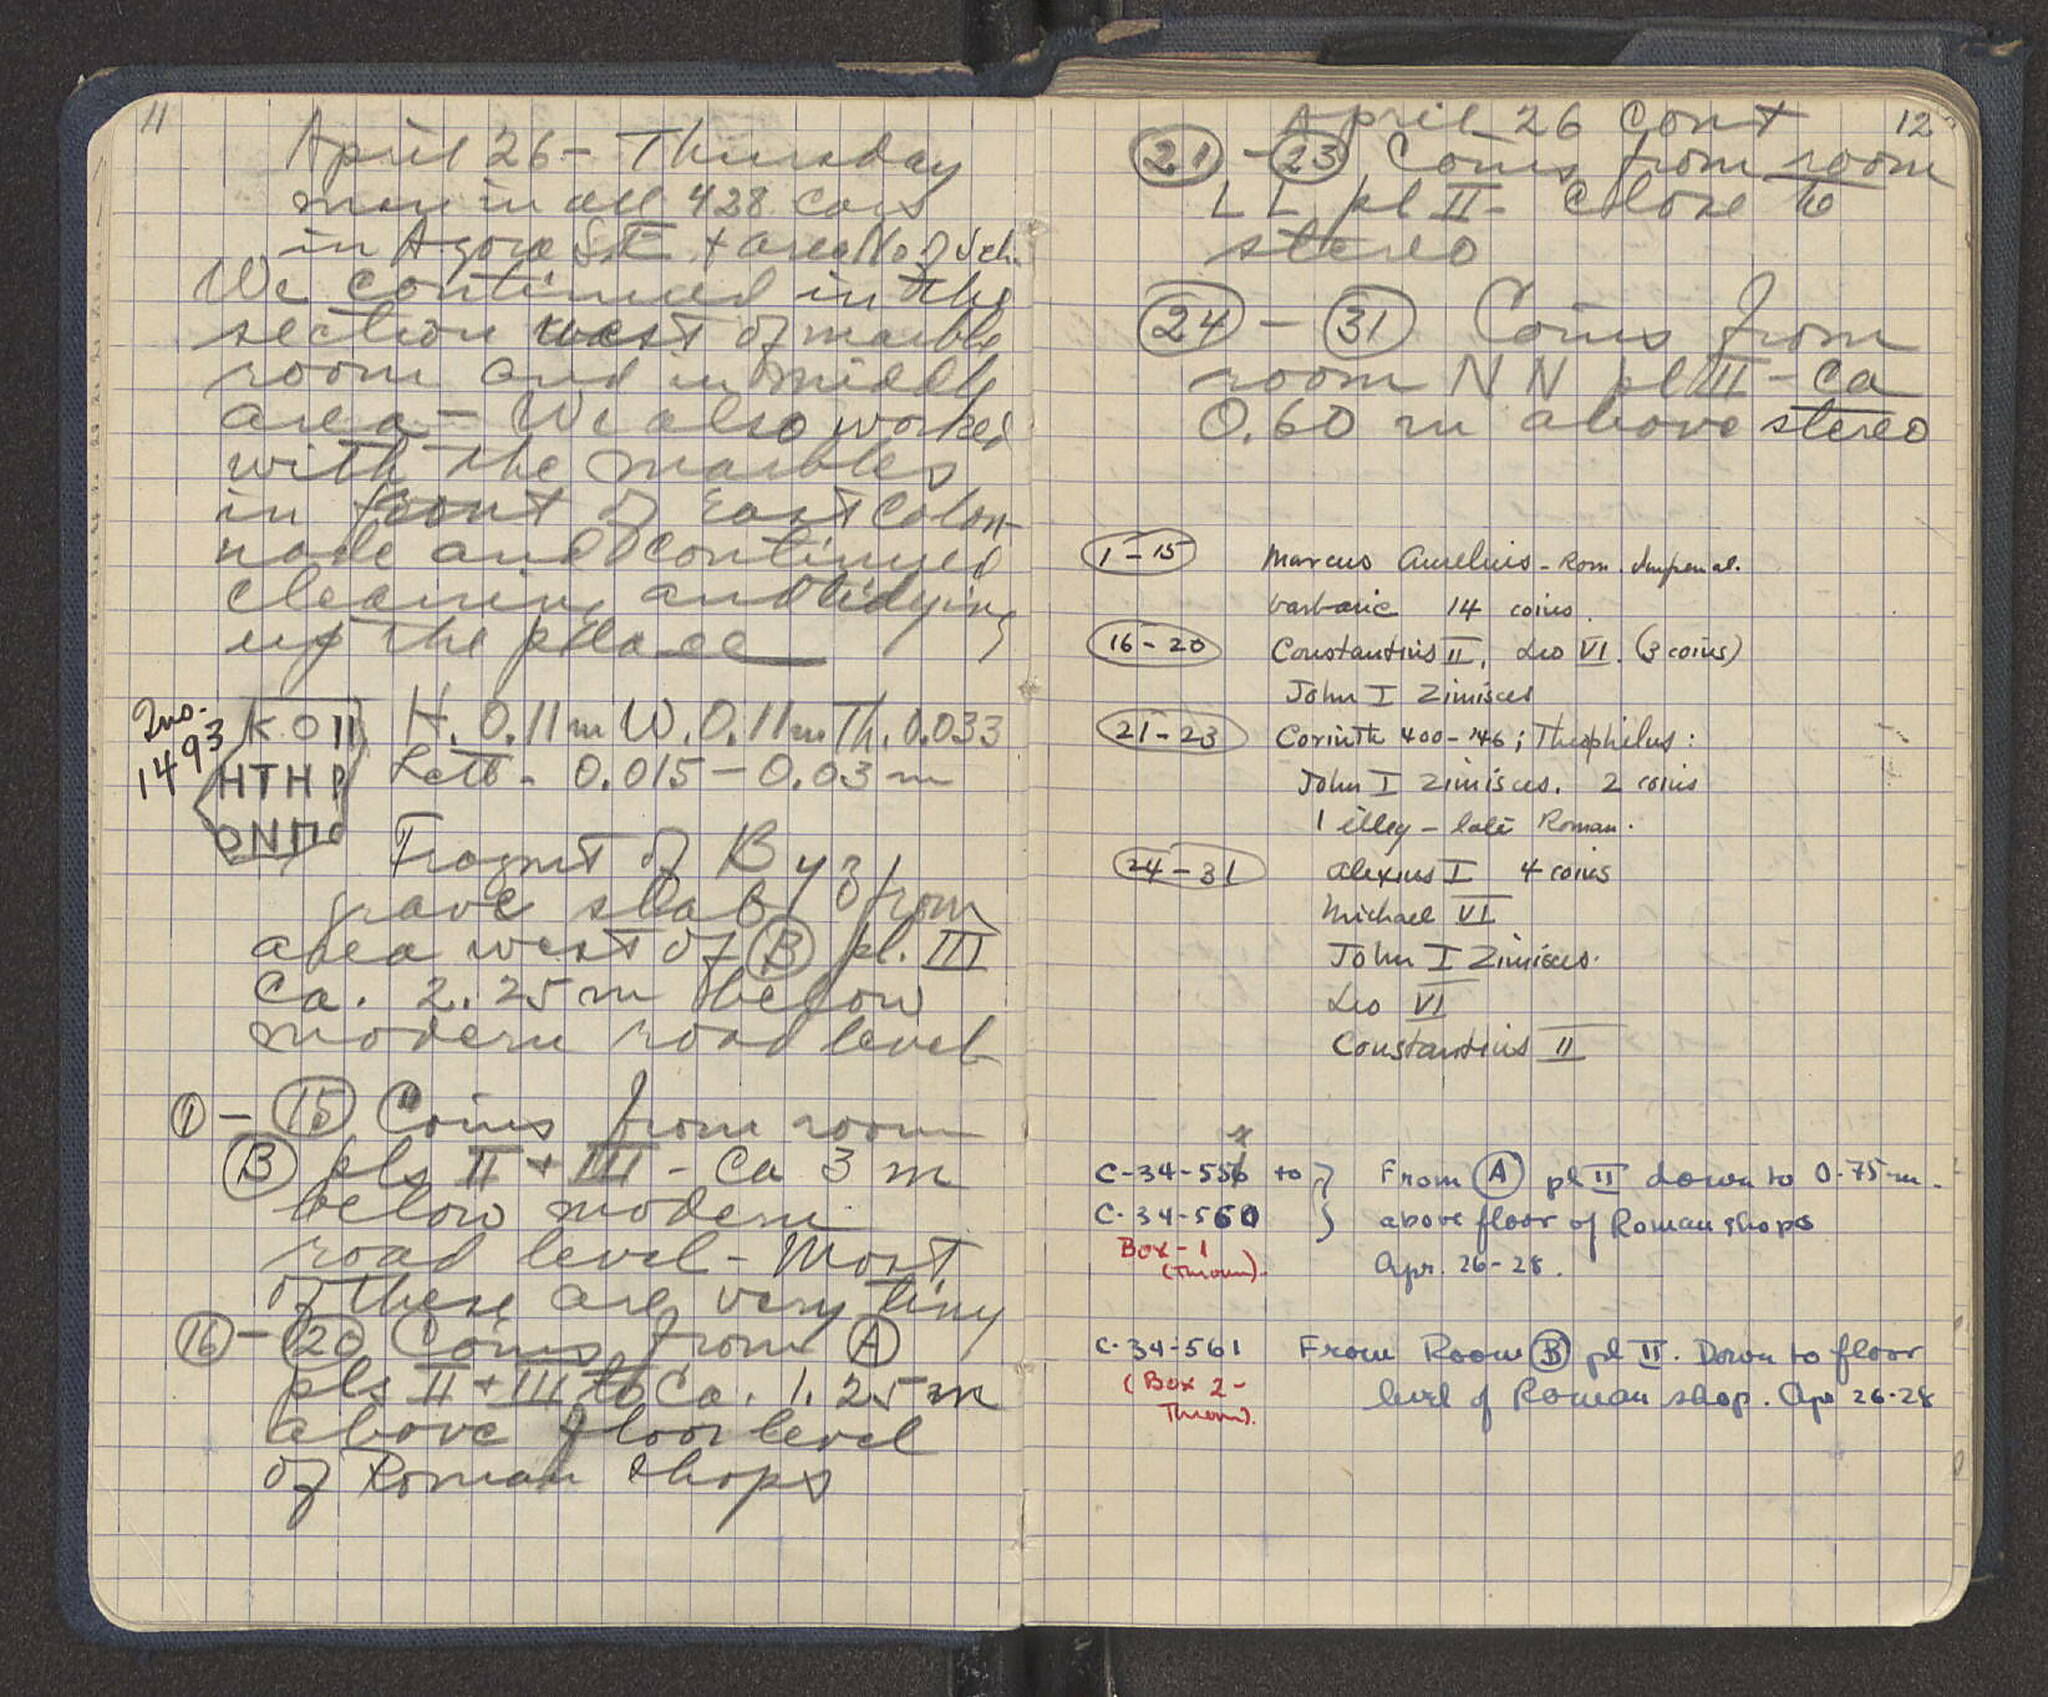 11
April 26 - Thursday
men in all 428 cars
in Agora SE + area No of Sch.
We continued in the
section west of marble
room and in middle
area - We also worked
with the marbles
in front of East Colon-
nade and continued
cleaning and tidying
up the place
Ins. 1493
ΚΟΙΙ
ΗΤΗΡ
Η. 0.11m W. 0.11m Th. 0.033
Lett. 0.015 - 0.03 m
Fragmt of Byz
grave slab from
area west of B pl. III
Ca. 2.25 m below
modern road level
1 - 15 Coins from room
B pls II + III - Ca 3 m
below modern
road level - Most
of these are very tiny
16 - 20 Coins from A
pls II + III to Ca. 1.25 m
above floor level
of Roman shops
April 26 Cont 12
21 - 23 Coins from room
LL pl II - Close to
stereo
24 - 31 Coins from
room NN pl III - Ca
0.60 m above stereo
1 - 15 Marcus Aurelius - Rom. Imperial.
barbaric 14 coins.
16 - 20 Constantius II, Leo VI. (3 coins)
John I Zimisces
21 - 23 Corinth 400-146; Theophilus:
John I Zimisces. 2 coins
1 illeg - late Roman.
24 - 31 Alexius I 4 coins
Michael VI
John I Zimisces.
Leo VI
Constantius II
C-34-556 to } From A pl II down to 0.75 m.
C-34-560 } above floor of Roman shops
Box - 1
(Thrown). Apr. 26-28.
C-34-561 From Room B pl II. Down to floor
(Box 2 - level of Roman shop. Apr 26-28
Thrown).